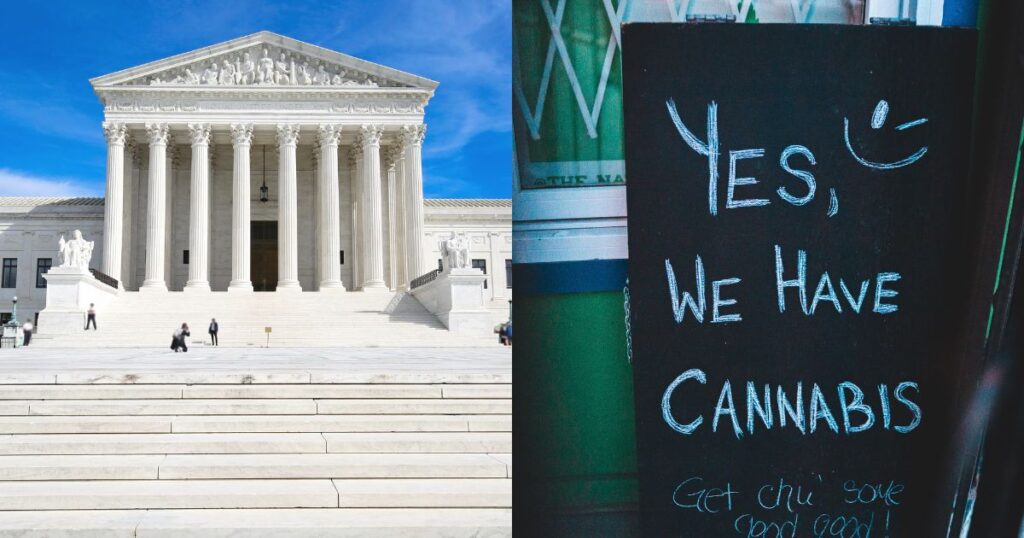 THE NA
YES,
WE HAVE
CANNABIS
Get chu' some
good good!